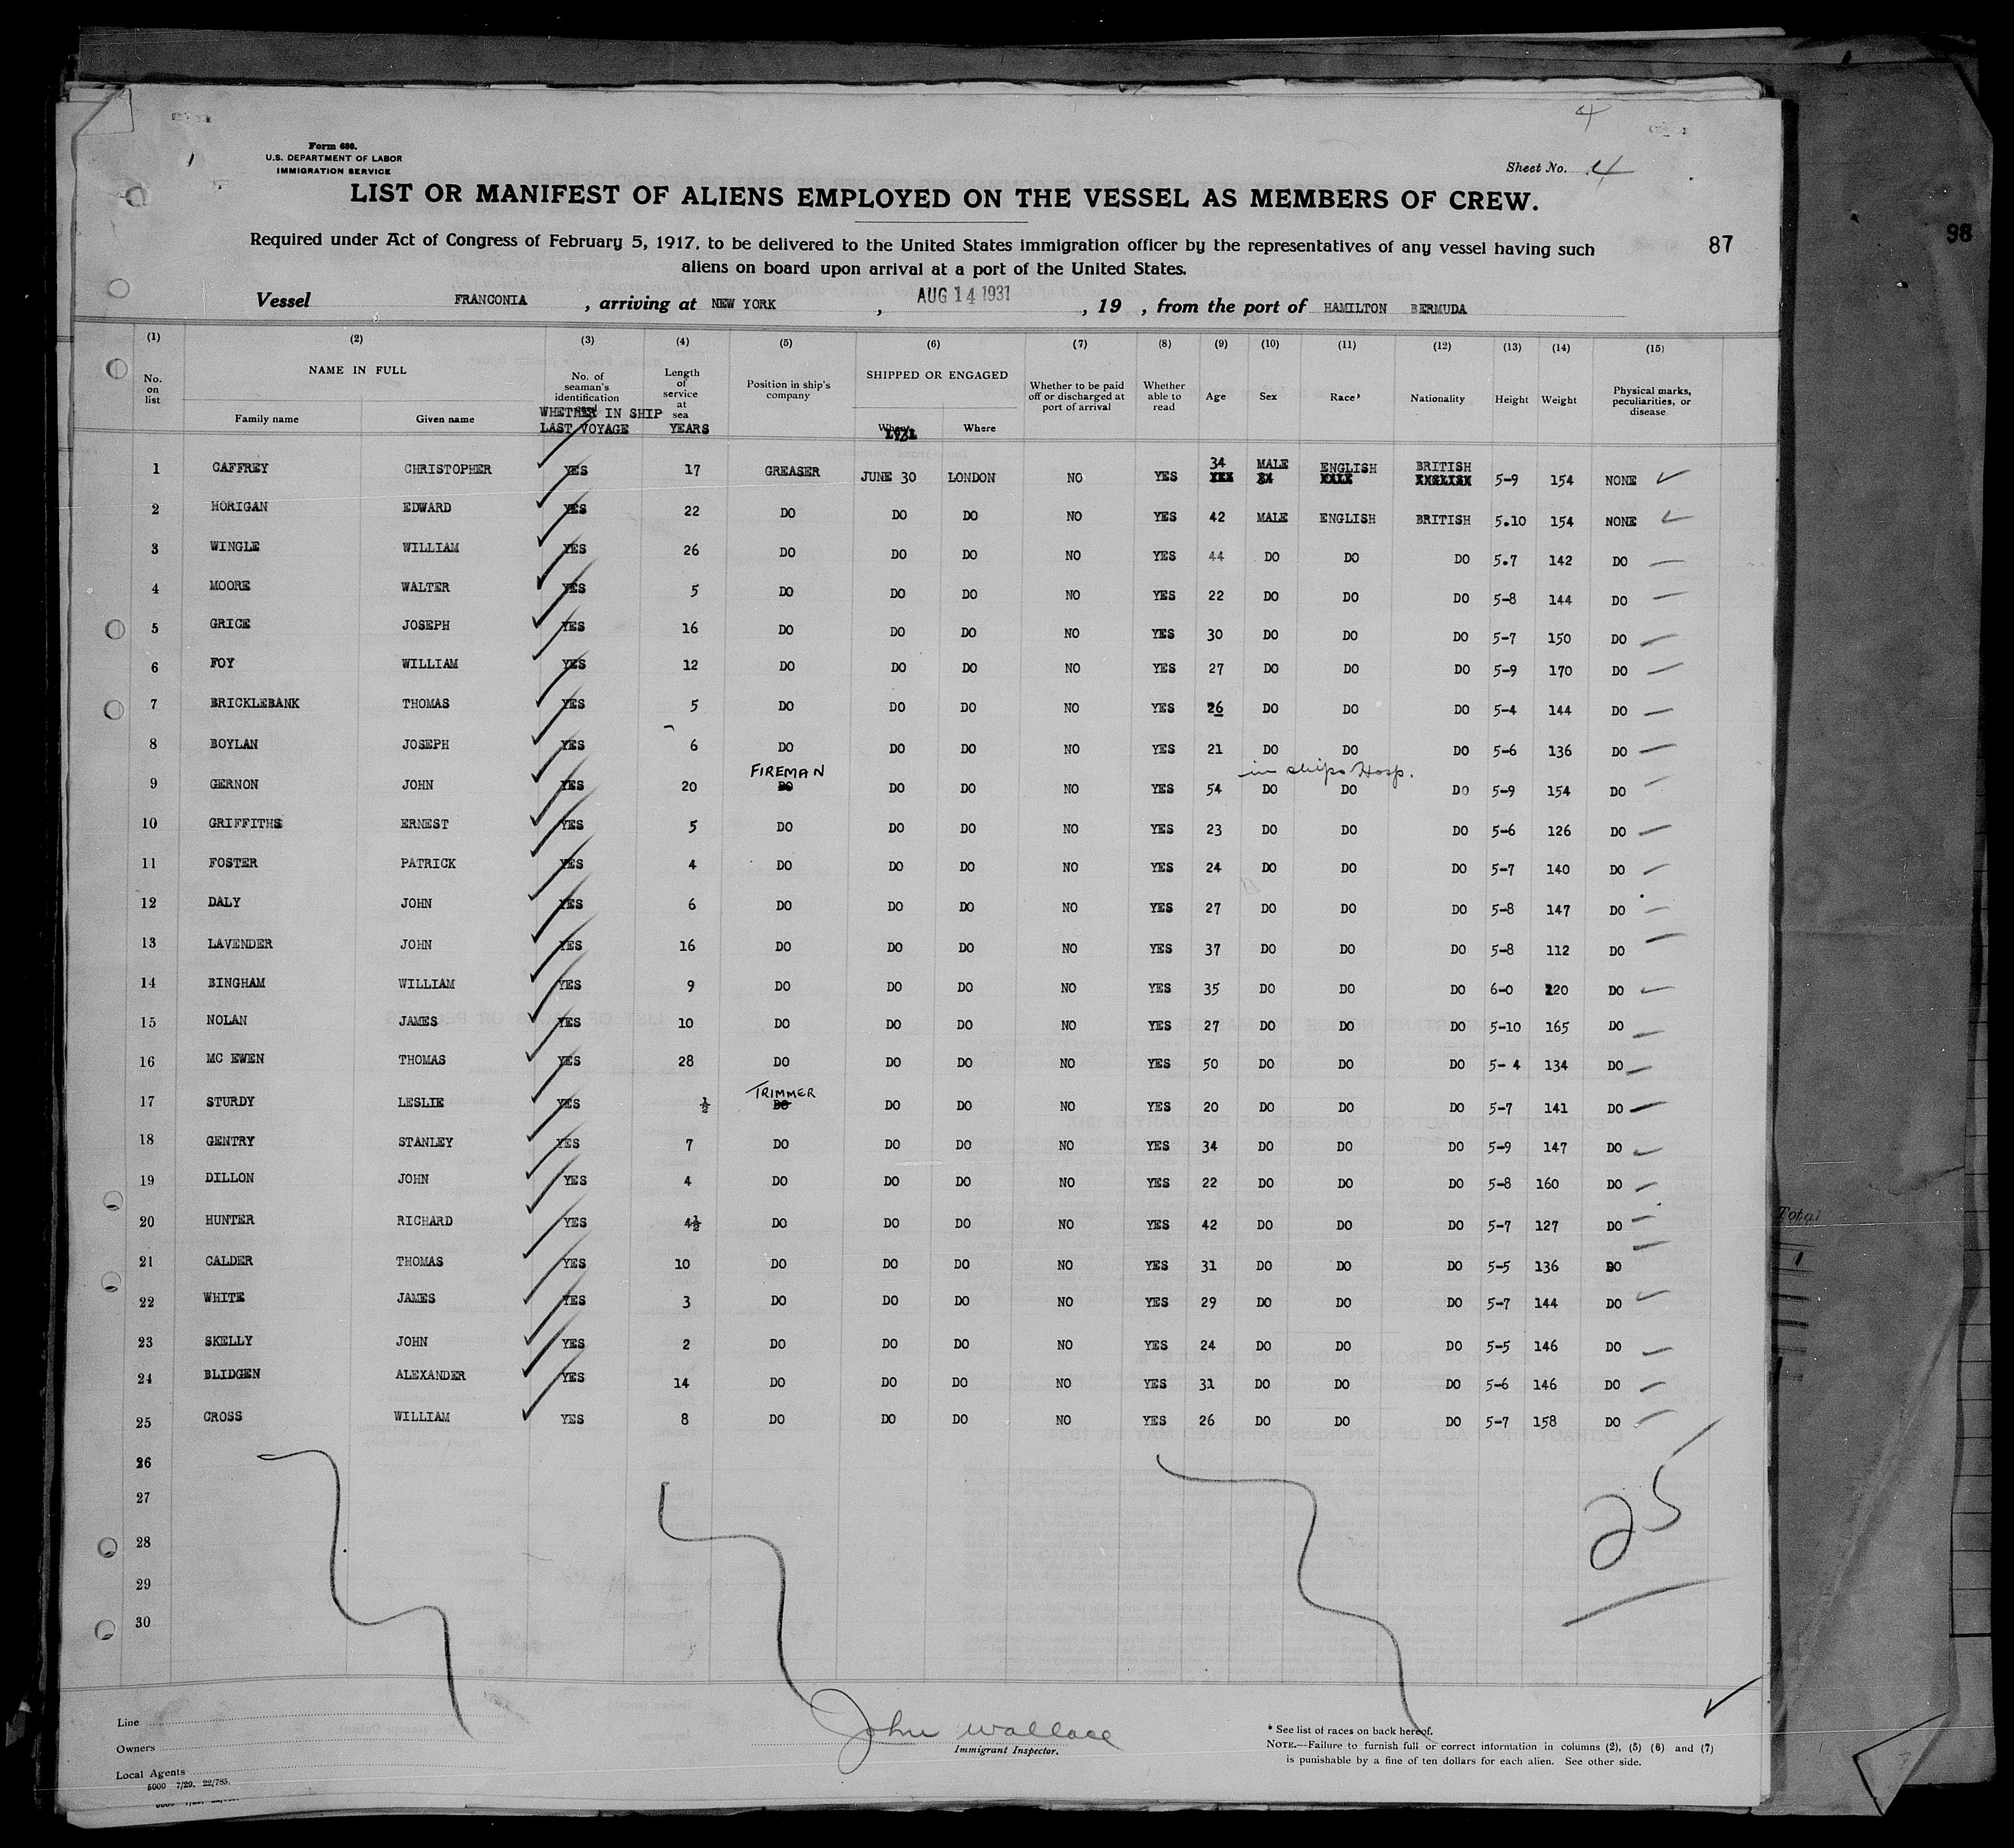 4
Form 680.
U.S. DEPARTMENT OF LABOR
IMMIGRATION SERVICE
Sheet No. 4
LIST OR MANIFEST OF ALIENS EMPLOYED ON THE VESSEL AS MEMBERS OF CREW.
Required under Act of Congress of February 5, 1917, to be delivered to the United States immigration officer by the representatives of any vessel having such
aliens on board upon arrival at a port of the United States.
87
98
Vessel FRANCONIA , arriving at NEW YORK , AUG 14 1931 , 19 , from the port of HAMILTON BERMUDA
(1) (2) (3) (4) (5) (6) (7) (8) (9) (10) (11) (12) (13) (14) (15)
No. on list NAME IN FULL Family name Given name No. of seaman's identification card WHETHER IN SHIP LAST VOYAGE Length of service at sea YEARS Position in ship's company SHIPPED OR ENGAGED When 1931 Where Whether to be paid off or discharged at port of arrival Whether able to read Age Sex Race* Nationality Height Weight Physical marks, peculiarities, or disease
1 CAFFREY CHRISTOPHER YES 17 GREASER JUNE 30 LONDON NO YES 34 MALE ENGLISH BRITISH 5-9 154 NONE
2 HORIGAN EDWARD YES 22 DO DO DO NO YES 42 MALE ENGLISH BRITISH 5.10 154 NONE
3 WINGLE WILLIAM YES 26 DO DO DO NO YES 44 DO DO DO 5.7 142 DO
4 MOORE WALTER YES 5 DO DO DO NO YES 22 DO DO DO 5-8 144 DO
5 GRICE JOSEPH YES 16 DO DO DO NO YES 30 DO DO DO 5-7 150 DO
6 FOY WILLIAM YES 12 DO DO DO NO YES 27 DO DO DO 5-9 170 DO
7 BRICKLEBANK THOMAS YES 5 DO DO DO NO YES 26 DO DO DO 5-4 144 DO
8 BOYLAN JOSEPH YES 6 DO DO DO NO YES 21 DO DO DO 5-6 136 DO
FIREMAN in ships Hosp.
9 GERNON JOHN YES 20 DO DO DO NO YES 54 DO DO DO 5-9 154 DO
10 GRIFFITHS ERNEST YES 5 DO DO DO NO YES 23 DO DO DO 5-6 126 DO
11 FOSTER PATRICK YES 4 DO DO DO NO YES 24 DO DO DO 5-7 140 DO
12 DALY JOHN YES 6 DO DO DO NO YES 27 DO DO DO 5-8 147 DO
13 LAVENDER JOHN YES 16 DO DO DO NO YES 37 DO DO DO 5-8 112 DO
14 BINGHAM WILLIAM YES 9 DO DO DO NO YES 35 DO DO DO 6-0 220 DO
15 NOLAN JAMES YES 10 DO DO DO NO YES 27 DO DO DO 5-10 165 DO
16 MC EWEN THOMAS YES 28 DO DO DO NO YES 50 DO DO DO 5-4 134 DO
TRIMMER
17 STURDY LESLIE YES ½ DO DO DO NO YES 20 DO DO DO 5-7 141 DO
18 GENTRY STANLEY YES 7 DO DO DO NO YES 34 DO DO DO 5-9 147 DO
19 DILLON JOHN YES 4 DO DO DO NO YES 22 DO DO DO 5-8 160 DO
20 HUNTER RICHARD YES 4½ DO DO DO NO YES 42 DO DO DO 5-7 127 DO
21 CALDER THOMAS YES 10 DO DO DO NO YES 31 DO DO DO 5-5 136 DO
22 WHITE JAMES YES 3 DO DO DO NO YES 29 DO DO DO 5-7 144 DO
23 SKELLY JOHN YES 2 DO DO DO NO YES 24 DO DO DO 5-5 146 DO
24 BLIDGEN ALEXANDER YES 14 DO DO DO NO YES 31 DO DO DO 5-6 146 DO
25 CROSS WILLIAM YES 8 DO DO DO NO YES 26 DO DO DO 5-7 158 DO
26
27
28
29
30
25
Total
Line
Owners
Local Agents
5000 7/29. 22/785.
John Wallace
Immigrant Inspector.
* See list of races on back hereof.
NOTE.—Failure to furnish full or correct information in columns (2), (5) (6) and (7)
is punishable by a fine of ten dollars for each alien. See other side.